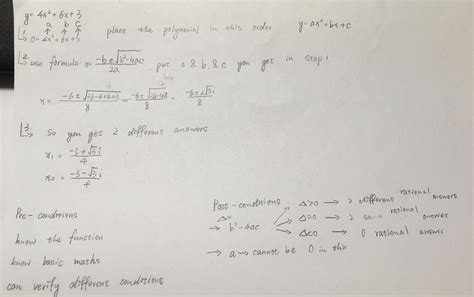 y= 4x² + 6x + 3
a b c
place the polynomial in this order y= ax² + bx + c
1. 0= 4x² + 6x + 3
2. use formula x= -b ± √b²-4ac / 2a , put a & b, & c you get in step 1
x= -6 ± √36-4×4×3 / 8 = -6 ± √36-48 / 8 = -6 ± 2√3i / 8
3. So you get 2 different answers
x₁ = -3+√3i / 4
x₂ = -3-√3i / 4
Pre-conditions
know the function
know basic maths
can verify different conditions
Post-conditions
Δ=
→ b²-4ac
Δ>0 → 2 different rational answers
Δ=0 → 2 same rational answer
Δ<0 → 0 rational answer
→ a → cannot be 0 in this